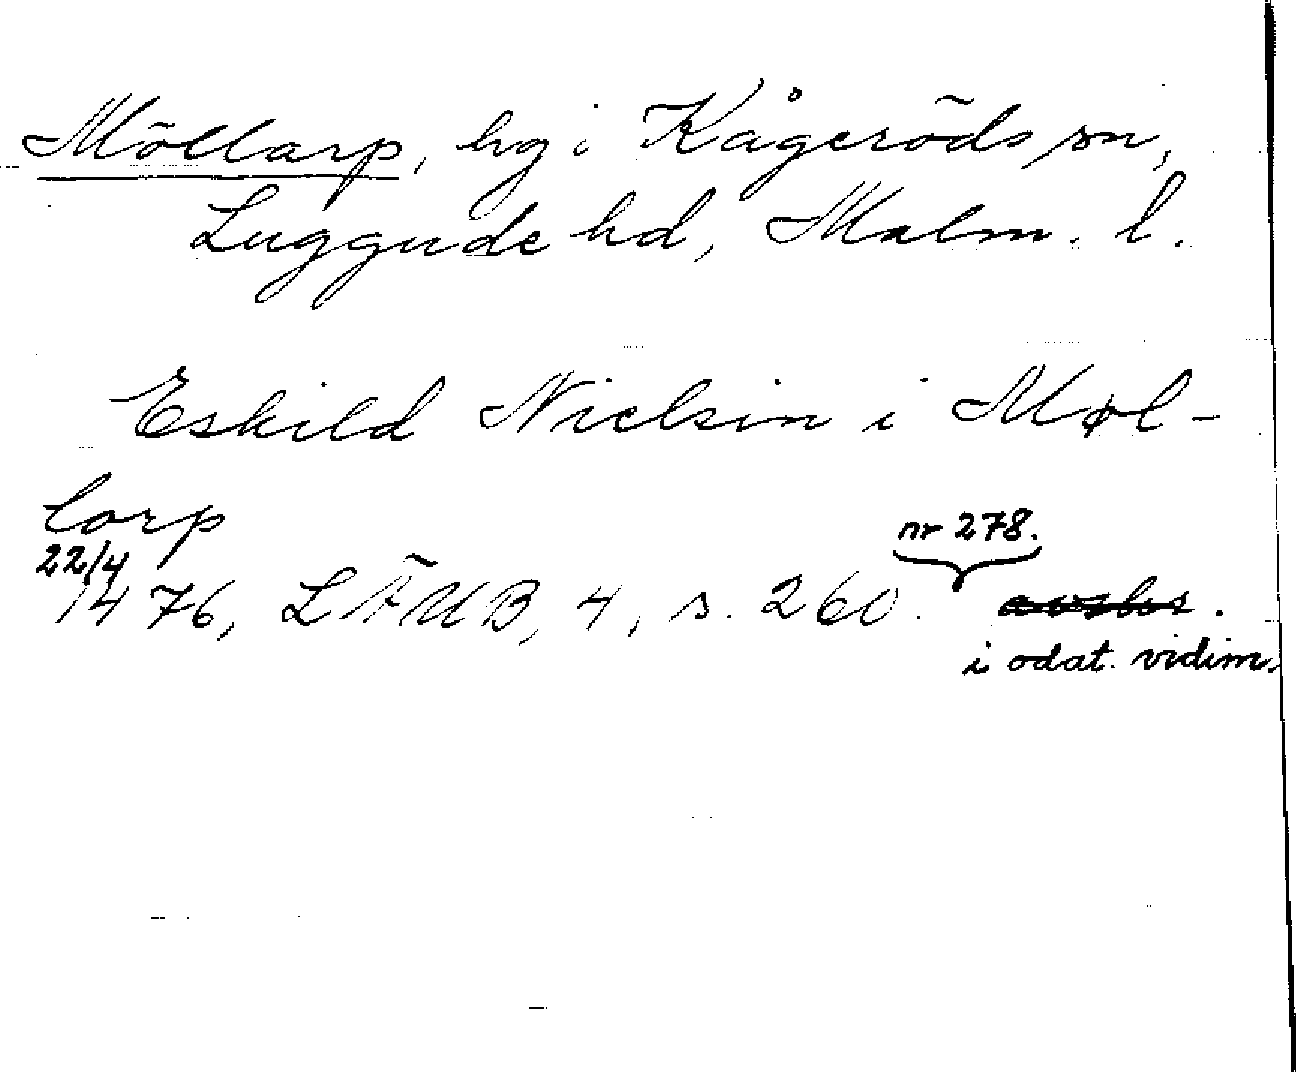 Möllarp, hg i Kågeröds sn,
Luggude hd, Malm. l.
Eskild Nielsin i Møl-
lorp
nr 278.
22/4
1476, LÄUB, 4, s. 260.
i odat. vidim.